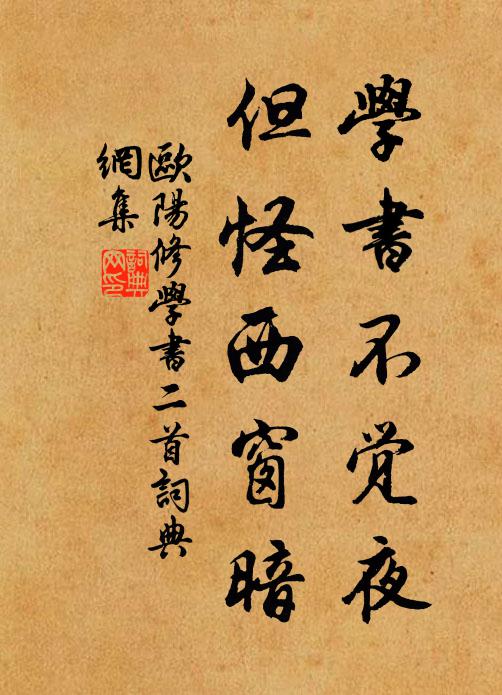 學書不覺夜
但怪西窗暗
歐陽修學書二首詞典
網集
詞典
网印